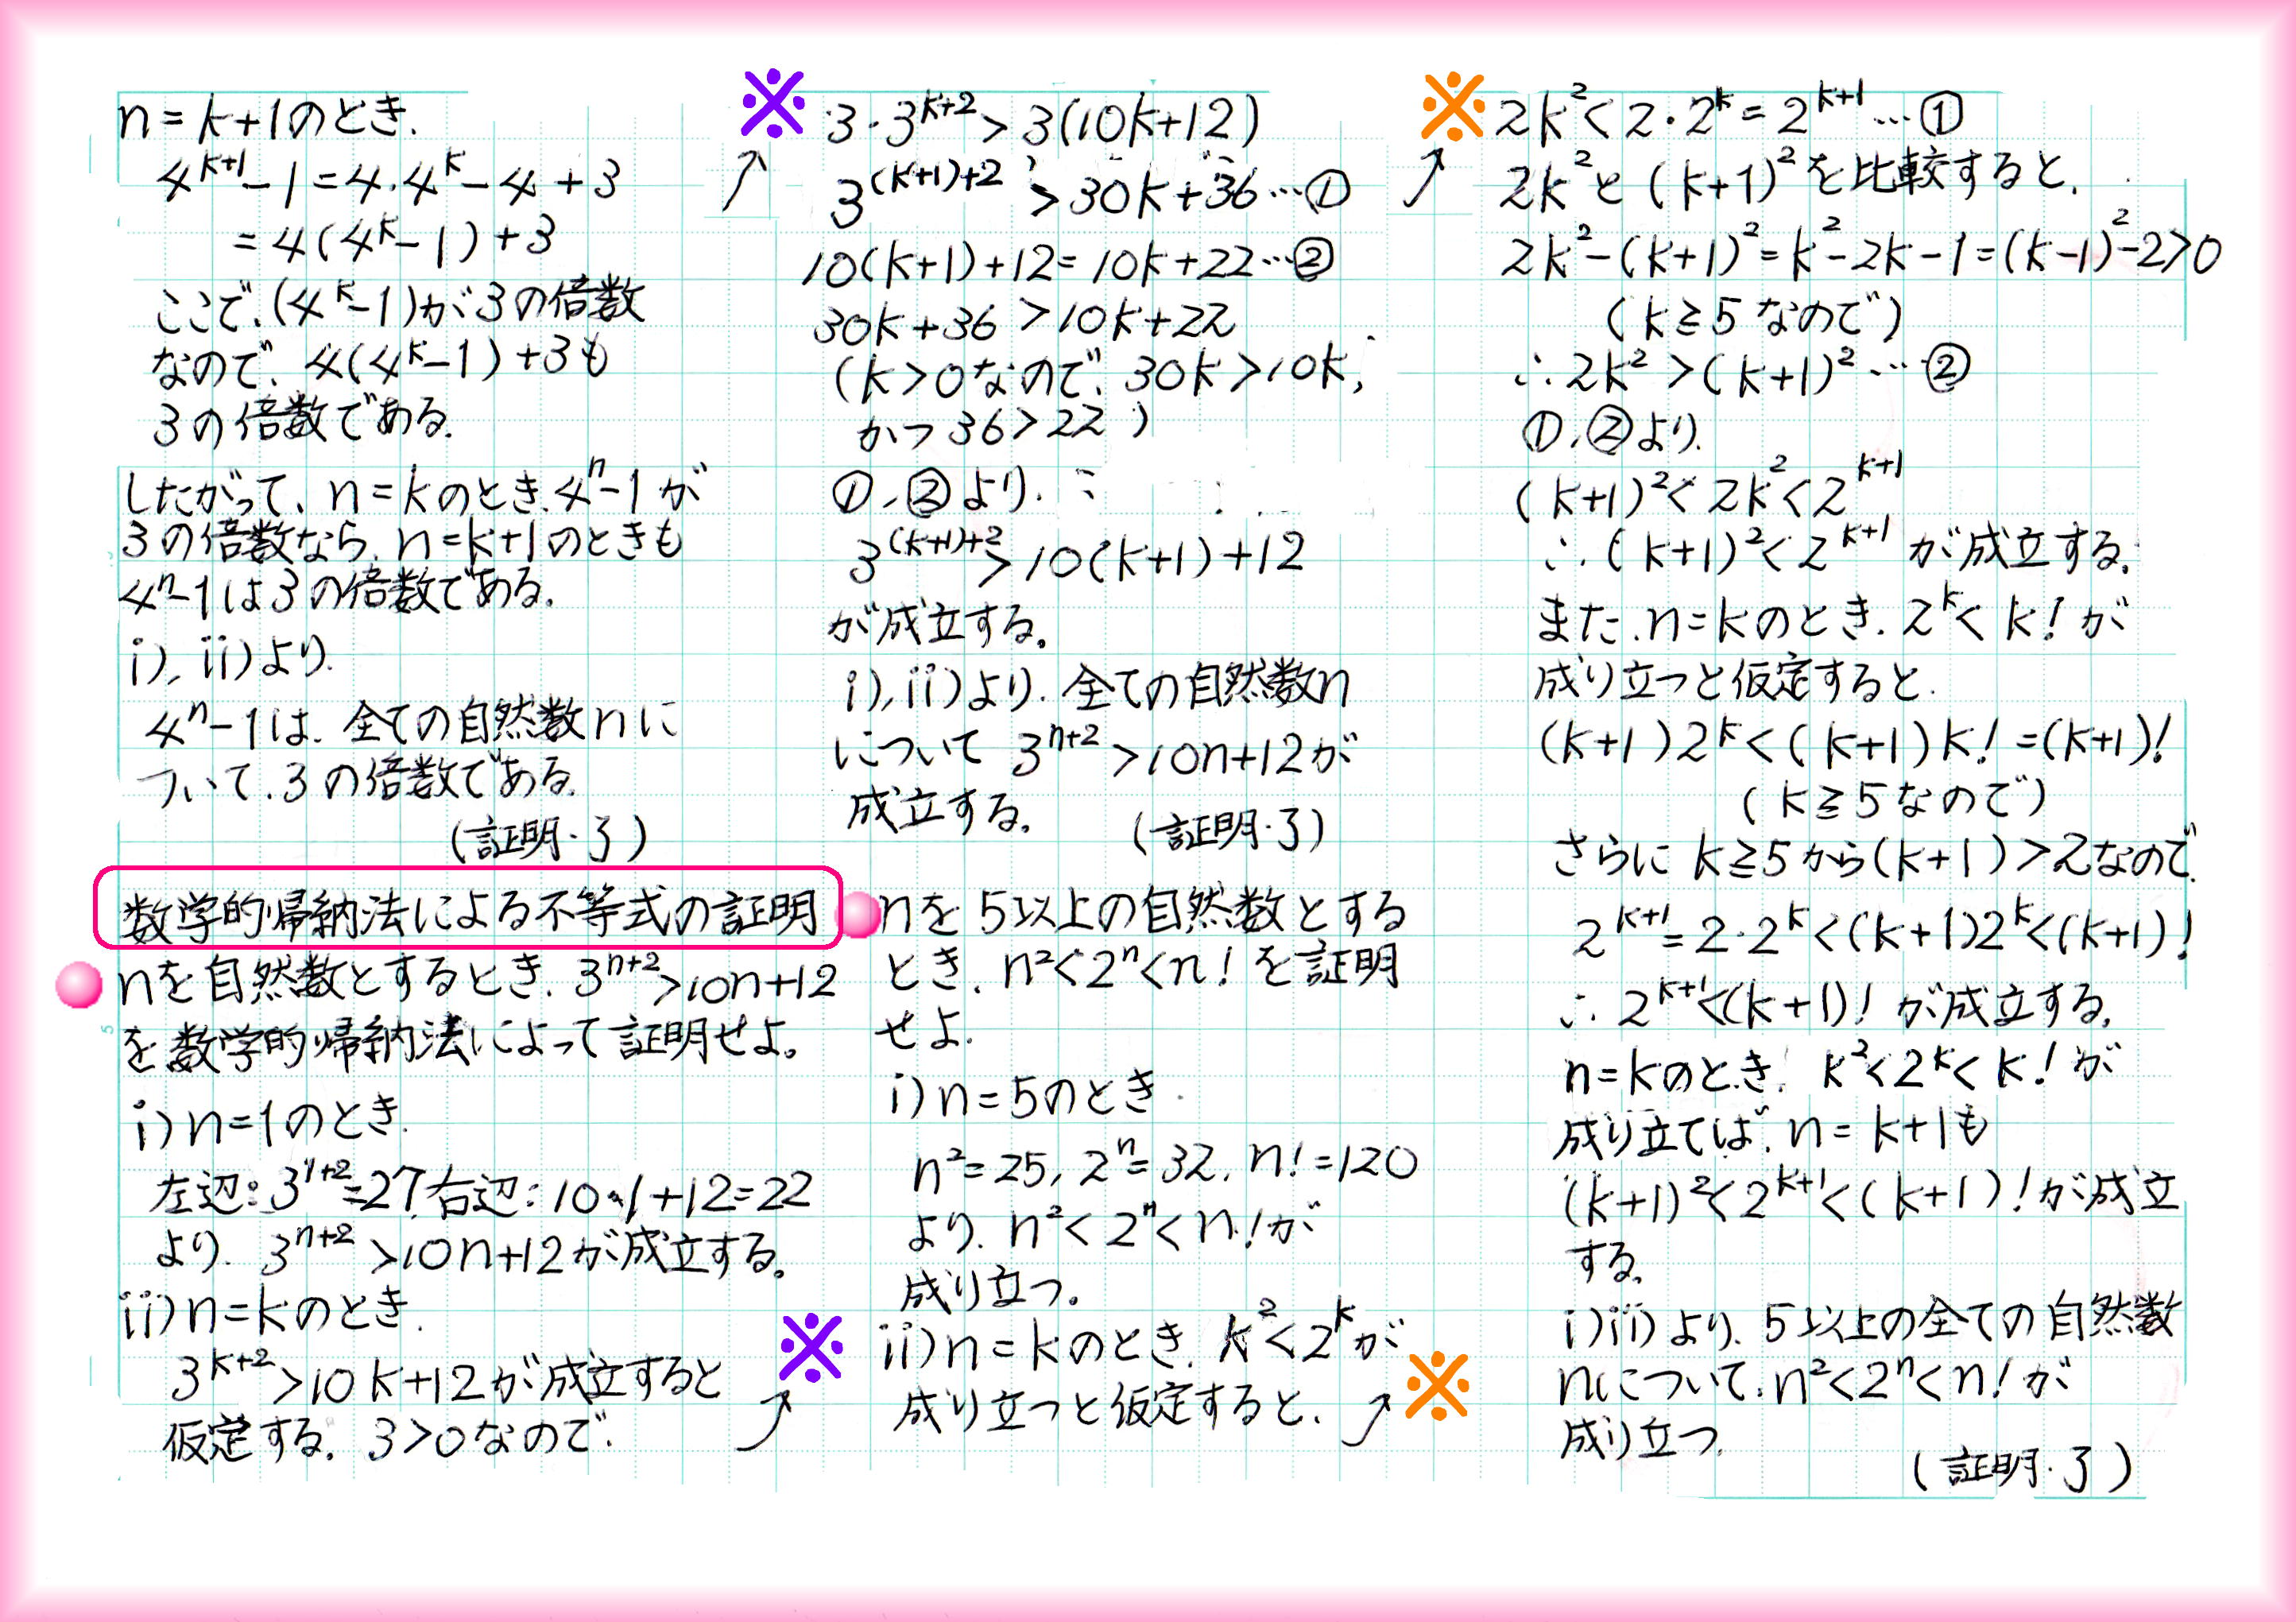 n=k+1のとき、
4^{k+1}-1=4・4^k-4+3
=4(4^k-1)+3
ここで、(4^k-1)が3の倍数
なので、4(4^k-1)+3も
3の倍数である。
したがって、n=kのとき、4^n-1が
3の倍数なら、n=k+1のときも
4^n-1は3の倍数である。
i),ii)より、
4^n-1は、全ての自然数nに
ついて、3の倍数である。
(証明・了)
数学的帰納法による不等式の証明
nを自然数とするとき、3^{n+2}>10n+12
を数学的帰納法によって証明せよ。
i)n=1のとき、
左辺:3^{1+2}=27,右辺:10・1+12=22
より、3^{n+2}>10n+12が成立する。
ii)n=kのとき、
3^{k+2}>10k+12が成立すると
仮定する。3>0なので、
※
※
3・3^{k+2}>3(10k+12)
3^{(k+1)+2}>30k+36…①
10(k+1)+12=10k+22…②
30k+36>10k+22
(k>0なので、30k>10k,
かつ36>22)
①,②より、
3^{(k+1)+2}>10(k+1)+12
が成立する。
i),ii)より、全ての自然数n
について3^{n+2}>10n+12が
成立する。(証明・了)
nを5以上の自然数とする
とき、n²<2^n<n!を証明
せよ。
i)n=5のとき
n²=25, 2^n=32, n!=120
より、n²<2^n<n!が
成り立つ。
ii)n=kのとき、k²<2^kが
成り立つと仮定すると、
※
※
2k²<2・2^k=2^{k+1}…①
2k²と(k+1)²を比較すると、
2k²-(k+1)²=k²-2k-1=(k-1)²-2>0
(k≧5なので)
∴2k²>(k+1)²…②
①,②より、
(k+1)²<2k²<2^{k+1}
∴(k+1)²<2^{k+1}が成立する。
また、n=kのとき、2^k<k!が
成り立つと仮定すると、
(k+1)2^k<(k+1)k!=(k+1)!
(k≧5なので)
さらにk≧5から(k+1)>2なので、
2^{k+1}=2・2^k<(k+1)2^k<(k+1)!
∴2^{k+1}<(k+1)!が成立する。
n=kのとき、k²<2^k<k!が
成り立てば、n=k+1も
(k+1)²<2^{k+1}<(k+1)!が成立
する。
i)ii)より、5以上の全ての自然数
nについて、n²<2^n<n!が
成り立つ。
(証明・了)